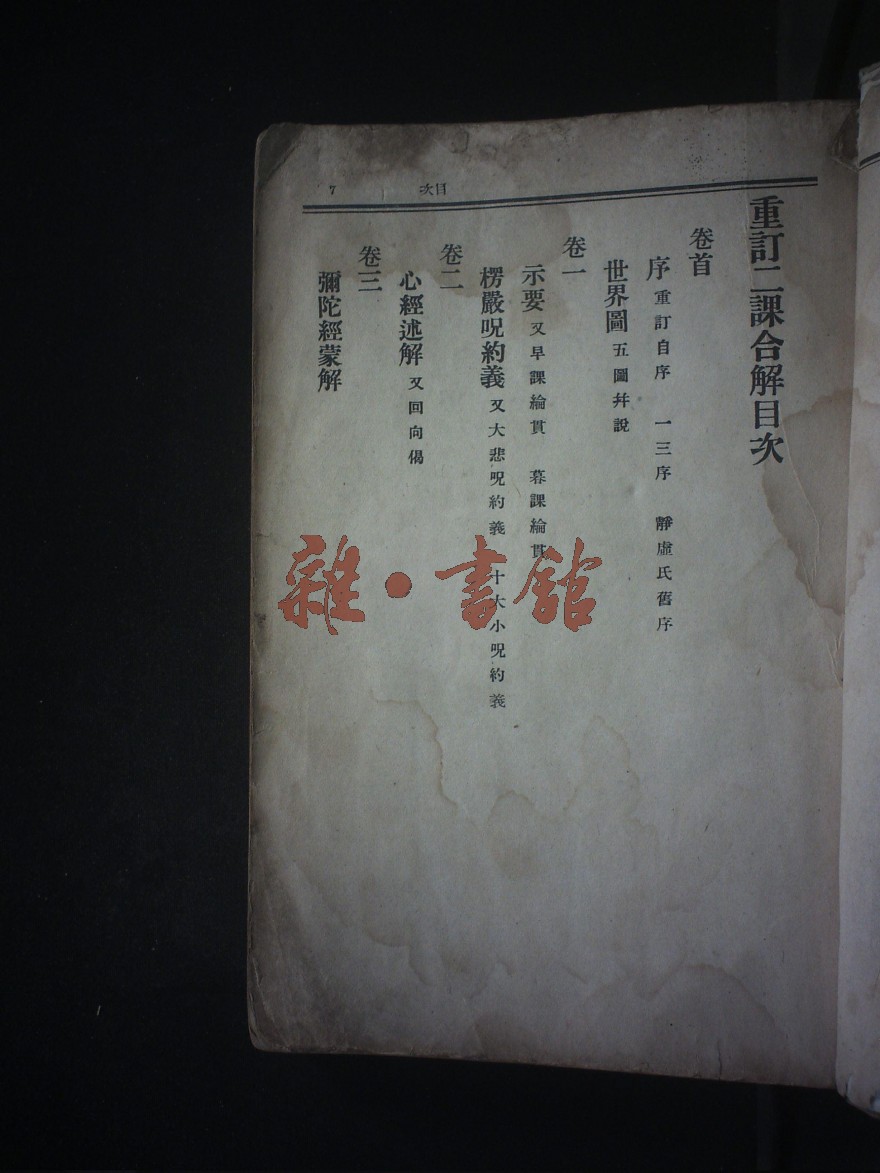 目次
7
重訂二課合解目次
卷首
序 重訂自序 一三序 靜虛氏舊序
世界圖 五圖幷說
卷一
示要 又早課綸貫 暮課綸貫
楞嚴呪約義 又大悲呪約義 十大小呪約義
卷二
心經述解 又回向偈
卷三
彌陀經蒙解
雜·書館